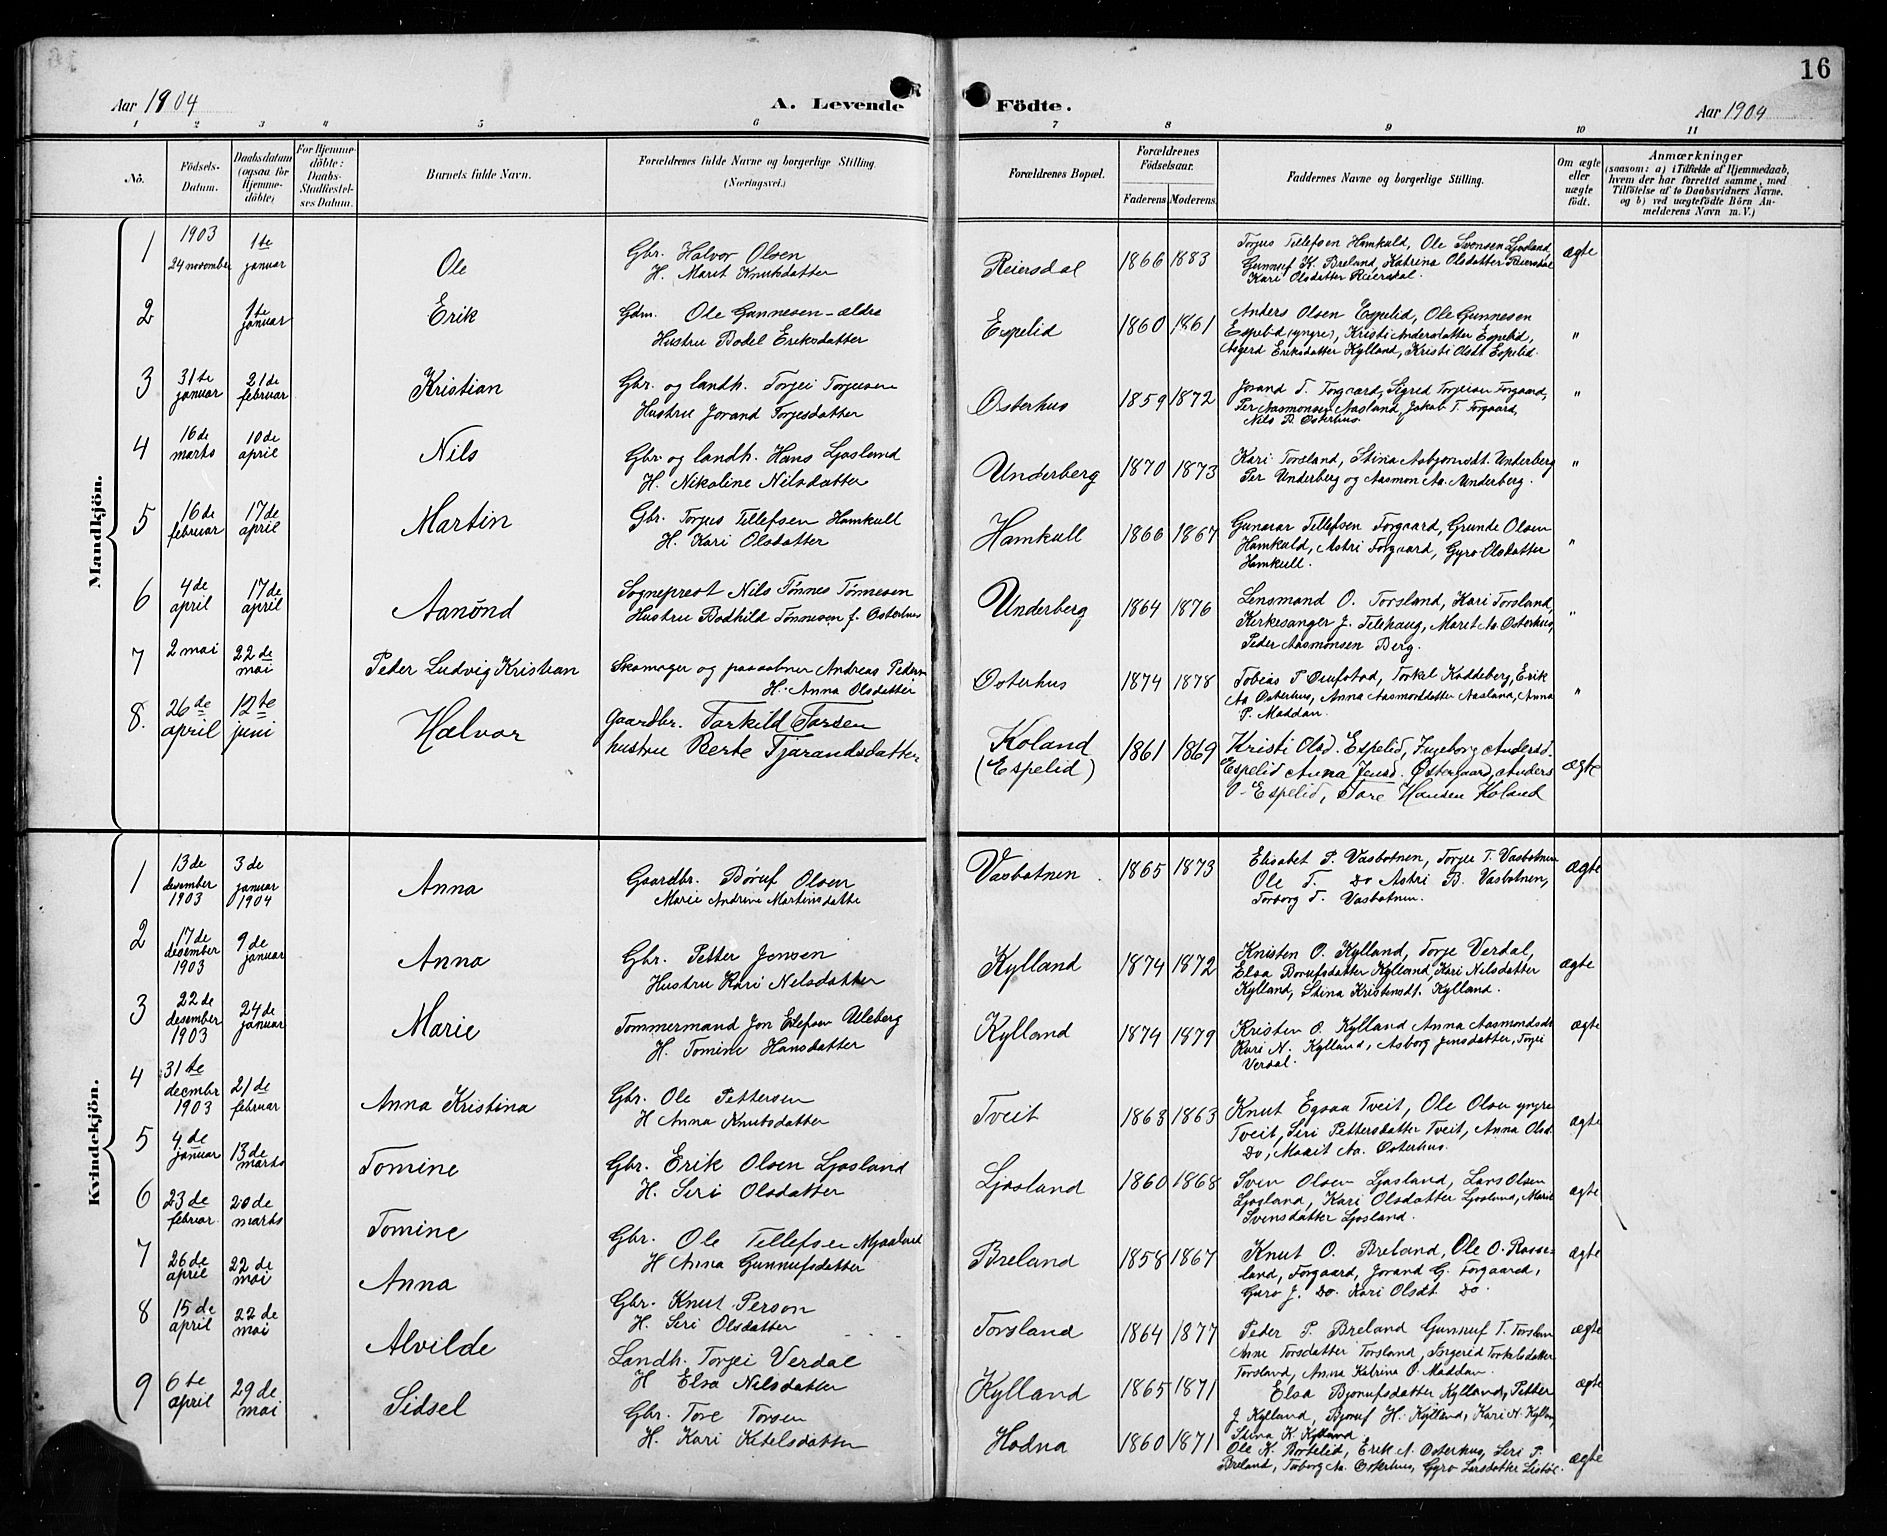 16
Aar 1904
A. Levende
Födte.
Aar 1904
1 2 3 4 5 6 7 8 9 10 11
No.
Födsels-Datum.
Daabsdatum (ogsaa for Hjemme-döbte)
For Hjemme-döbte: Daabs-Stadfæstel-ses Datum.
Barnets fulde Navn.
Forældrenes fulde Navne og borgerlige Stilling. (Næringsvei.)
Forældrenes Bopæl.
Forældrenes Födselsaar.
Faderens Moderens
Faddernes Navne og borgerlige Stilling.
Om ægte eller uægte födt.
Anmærkninger
(saasom: a) i Tilfælde af Hjemmedaab, hvem der har forrettet samme, med Tilföielse af to Daabsvidners Navne, og b) ved uægtefödte Börn An-melderens Navn m. V.)
Mandkjön.
1 1903 24 november 1te januar Ole Gbr. Halvor Olsen
H. Marit Knutsdatter
Reiersdal 1866 1883 Torjus Tellefsen Hamkuld, Ole Svensen Ljosland,
Gunnuf K. Breland, Katrina Olsdatter Reiersdal
Kari Olsdatter Reiersdal. ægte
2 1te januar Erik Gdm. Ole Gunnesen ældre
Hustru Bodel Eriksdatter
Espelid 1860 1861 Anders Olsen Espelid, Ole Gunnesen
Espelid (yngre), Kristi Andersdatter Espelid,
Asgerd Eriksdatter Kylland, Kristi Olsdt Espelid. "
3 31te januar 21de februar Kristian Gbr. og landh. Torjei Torjusen
Hustru Jorand Torjesdatter
Osterhus 1859 1872 Jorand T. Forgaard, Sigred Torjeisen Forgaard,
Per Aasmonsen Aasland, Jakob T. Forgaard,
Nils P. Osterhus. "
4 16de marts 10de april Nils Gbr og landh. Hans Ljosland
H. Nikoline Nilsdatter
Underberg 1870 1873 Kari Torsland, Stina Asbjornsdt. Underberg
Per Underberg og Aasmon Aa. Underberg. "
5 16de februar 17de april Martin Gbr. Torjus Tellefsen Hamkull
H. Kari Olsdatter
Hamkull 1866 1867 Gunnar Tellefsen Forgaard, Grunde Olsen
Hamkuld, Astri Forgaard, Gyro Olsdatter
Hamkull. "
6 4de april 17de april Aanönd Sogneprest Nils Tönnes Tönnesen
Hustru Bodhild Tönnesen f. Osterhus
Underberg 1864 1876 Lensmand O. Torsland, Kari Torsland,
Kirkesanger J. Tilehaug, Maret Aa Osterhus,
Peder Aasmonsen Berg. "
7 2 mai 22de mai Peder Ludvig Kristian Skomager og Andreas Peders
H. Anna Olsdatter
Osterhus 1874 1878 Tobias P , Torkel Kaddeberg, Erik
Aa Osterhus, Anna Aasmonsdatter Aasland, Anna
P. Maddan. "
8. 26de april 12te juni Halvor Gaardbr. Tarkild Tarsen
hustru Berte Tjarandsdatter
Koland
(Espelid) 1861 1869 Kristi Olsd. Espelid, Ingeborg Andersd.
Espelid Anna Jensd. Østergaard, Anders
O. Espelid, Tore Hansen Koland ægte
Kvindekjön.
1 13de desember 1903 3de januar 1904 Anna Gaardbr. Böruf Olsen
Marie Andrine Martinsdatte
Vasbotnen 1865 1873 Elisabet P. Vasbotnen, Torjei T. Vasbotnen
Ole T. Do Astri B. Vasbotnen,
Torborg T. Vasbotnen. ægte
2 17de desember 1903 9de januar Anna Gbr. Petter Jensen
Hustru Kari Nilsdatter
Kylland 1874 1872 Knisten O. Kylland, Torje Verdal,
Elsa Borufsdatter Kylland, Kari Nilsdatter
Kylland, Stina Kristensdt. Kylland. ægte
3 22de desember 1903 24de januar Marie Tommermand Jon Ellefsen Uleberg
H. Tomine Hansdatter
Kylland 1874 1879 Kristen O. Kylland Anna Aasmondsdt
Kari N. Kylland, Asborg Jensdatter, Torjei
Verdal. ægte
4 31te decmber 1903 21de februar Anna Kristina Gbr. Ole Pettersen
H Anna Knutsdatter
Tveit 1863 1863 Knut Egsaa Tveit, Ole Olsen yngre
Tveit, Siri Pettersdatter Tveit, Anna Olsd.
Do, Marit Aa. Osterhus. ægte
5 4de januar 13de marts Tomine Gbr. Erik Olsen Ljosland
H. Seri Olsdatter
Ljosland 1860 1868 Sven Olsen Ljosland, Lars Olsen
Ljosland, Kari Olsdatter Ljosland, Marie
Svensdatter Ljosland. ægte
6 23de februar 20de marts Tomine Gbr. Ole Tellefsen Mjaaland
H Anna Gunnufsdatter
Breland 1858 1867 Knut O. Breland, Ole O. Rosse-
land, Forgaard, Jorand G. Forgaard,
Guro J. Do. Kari Olsdt Do. ægte
7 26de april 22de mai Anna Gbr. Knut Person
H. Seri Olsdatter
Torsland 1864 1877 Peder P. Breland Gunnuf T. Torslan
Anne Torsdatter Torsland, Ingerid Torkelsdatter
Torsland, Anna Katrina O. Maddan. ægte
8 15de april 22de mai Alvilde Landh. Torjei Verdal
H Elsa Nilsdatter
Kylland 1865 1871 Elsa Bjorufsdatter Kylland, Petter
J Kylland, Bjoruf H. Kylland, Kari N. Kyllan
Stina K. Kylland ægte
9 6te april 29de mai Sidsel Gbr. Tore Torsen
H. Kari Ketelsdatter
Hodna 1860 1871 Ole K. Bortelid, Erik A. Osterhus, Seri P.
Breland, Torborg Aa. Osterhus, Gyro Larsdatter Listöl. ægte